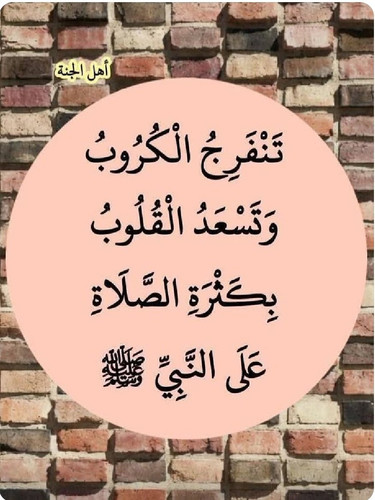 أهل الجنة
تَنْفَرِجُ الْكُرُوبُ
وَتَسْعَدُ الْقُلُوبُ
بِكَثْرَةِ الصَّلَاةِ
عَلَى النَّبِيِّ ﷺ